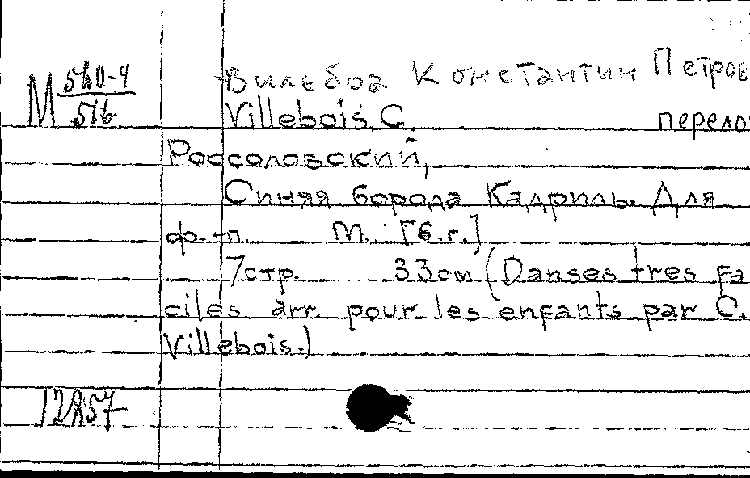 Вильбоа Константин Петров
М 580-4
516
Villebois C. перело
Россоловский,
Синяя борода Кадриль. Для
ф.-п. М. [б.г.]
7 стр. 33 см (Danses tres fa
ciles arr. pour les enfants par C.
Villebois.)
12857